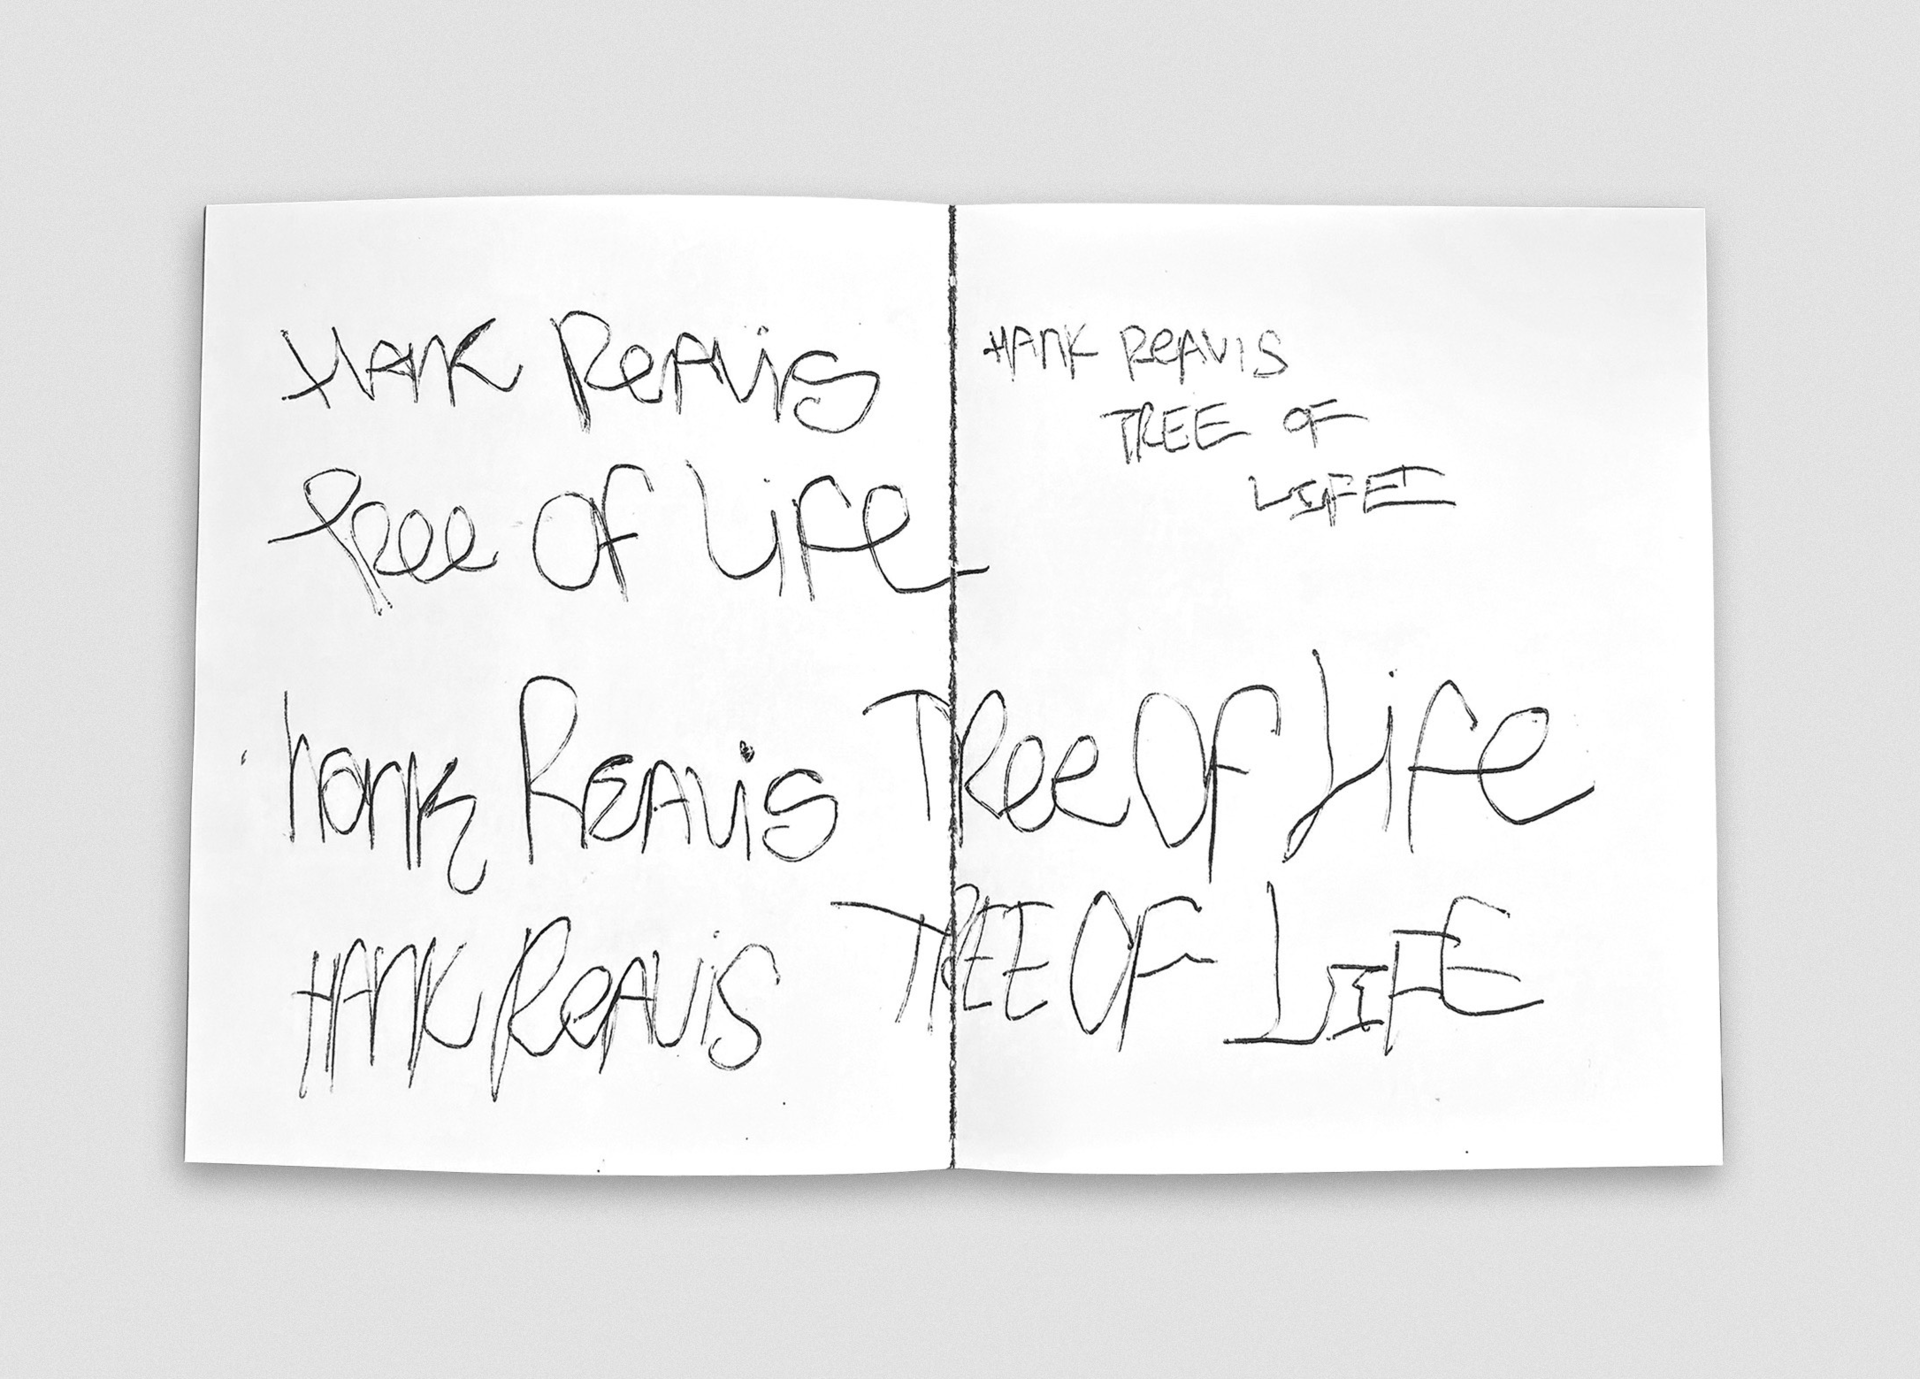 HAnK ReAvis
Tree OF Life
HAnK ReAVIS
TREE OF
LIFE
hanK REAvis
Tree OF Life
HAnK ReAViS
TREE OF LIFE